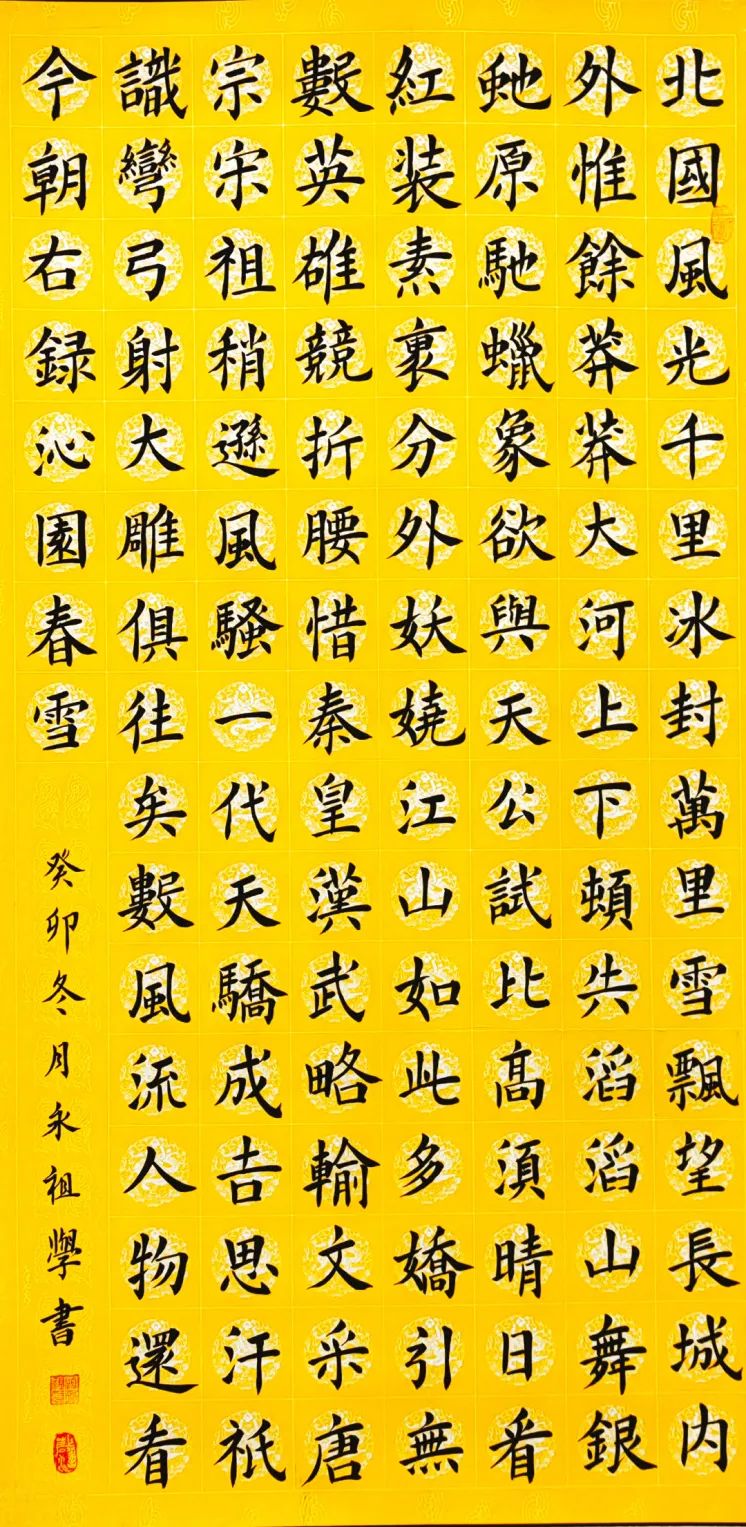 北國風光千里冰封萬里雪飄望長城内
外惟餘莽莽大河上下頓失滔滔山舞銀
虵原馳蠟象欲與天公試比高須晴日看
紅装素裹分外妖嬈江山如此多嬌引無
數英雄競折腰惜秦皇漢武略輸文采唐
宗宋祖稍遜風騷一代天驕成吉思汗祇
識彎弓射大雕俱往矣數風流人物還看
今朝右録沁園春雪
癸卯冬月永祖學書